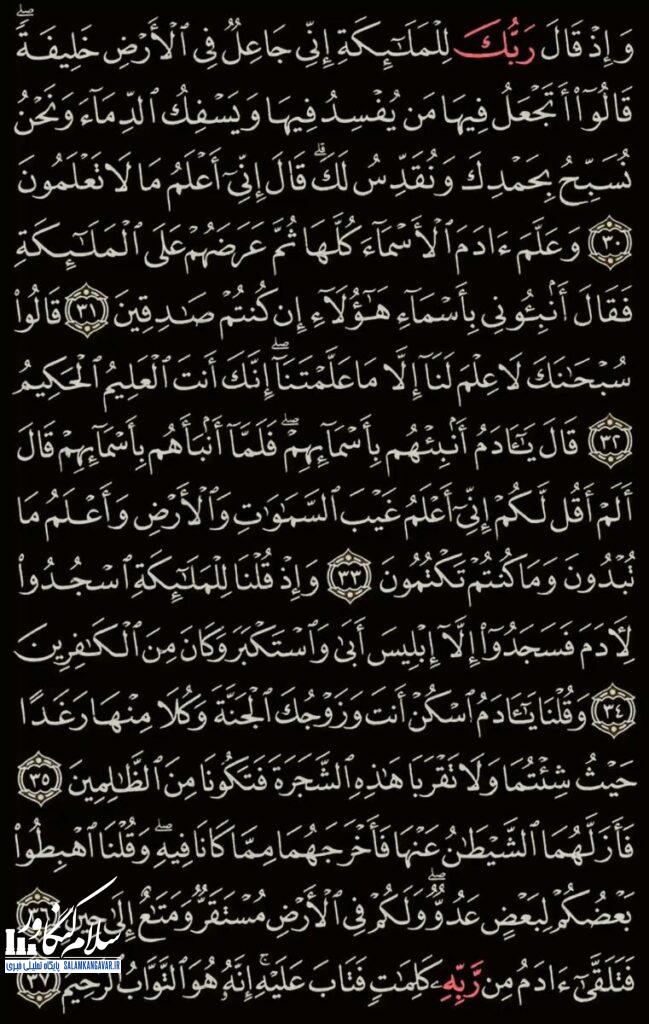 وَإِذۡ قَالَ رَبُّكَ لِلۡمَلَٰٓئِكَةِ إِنِّي جَاعِلٞ فِي ٱلۡأَرۡضِ خَلِيفَةٗۖ
قَالُوٓاْ أَتَجۡعَلُ فِيهَا مَن يُفۡسِدُ فِيهَا وَيَسۡفِكُ ٱلدِّمَآءَ وَنَحۡنُ
نُسَبِّحُ بِحَمۡدِكَ وَنُقَدِّسُ لَكَۖ قَالَ إِنِّيٓ أَعۡلَمُ مَا لَا تَعۡلَمُونَ
٣٠ وَعَلَّمَ ءَادَمَ ٱلۡأَسۡمَآءَ كُلَّهَا ثُمَّ عَرَضَهُمۡ عَلَى ٱلۡمَلَٰٓئِكَةِ
فَقَالَ أَنۢبِـُٔونِي بِأَسۡمَآءِ هَٰٓؤُلَآءِ إِن كُنتُمۡ صَٰدِقِينَ ٣١ قَالُواْ
سُبۡحَٰنَكَ لَا عِلۡمَ لَنَآ إِلَّا مَا عَلَّمۡتَنَآۖ إِنَّكَ أَنتَ ٱلۡعَلِيمُ ٱلۡحَكِيمُ
٣٢ قَالَ يَٰٓـَٔادَمُ أَنۢبِئۡهُم بِأَسۡمَآئِهِمۡۖ فَلَمَّآ أَنۢبَأَهُم بِأَسۡمَآئِهِمۡ قَالَ
أَلَمۡ أَقُل لَّكُمۡ إِنِّيٓ أَعۡلَمُ غَيۡبَ ٱلسَّمَٰوَٰتِ وَٱلۡأَرۡضِ وَأَعۡلَمُ مَا
تُبۡدُونَ وَمَا كُنتُمۡ تَكۡتُمُونَ ٣٣ وَإِذۡ قُلۡنَا لِلۡمَلَٰٓئِكَةِ ٱسۡجُدُواْ
لِأٓدَمَ فَسَجَدُوٓاْ إِلَّآ إِبۡلِيسَ أَبَىٰ وَٱسۡتَكۡبَرَ وَكَانَ مِنَ ٱلۡكَٰفِرِينَ
٣٤ وَقُلۡنَا يَٰٓـَٔادَمُ ٱسۡكُنۡ أَنتَ وَزَوۡجُكَ ٱلۡجَنَّةَ وَكُلَا مِنۡهَا رَغَدًا
حَيۡثُ شِئۡتُمَا وَلَا تَقۡرَبَا هَٰذِهِ ٱلشَّجَرَةَ فَتَكُونَا مِنَ ٱلظَّٰلِمِينَ ٣٥
فَأَزَلَّهُمَا ٱلشَّيۡطَٰنُ عَنۡهَا فَأَخۡرَجَهُمَا مِمَّا كَانَا فِيهِۖ وَقُلۡنَا ٱهۡبِطُواْ
بَعۡضُكُمۡ لِبَعۡضٍ عَدُوّٞۖ وَلَكُمۡ فِي ٱلۡأَرۡضِ مُسۡتَقَرّٞ وَمَتَٰعٌ إِلَىٰ حِينٖ ٣٦
فَتَلَقَّىٰٓ ءَادَمُ مِن رَّبِّهِۦ كَلِمَٰتٖ فَتَابَ عَلَيۡهِۚ إِنَّهُۥ هُوَ ٱلتَّوَّابُ ٱلرَّحِيمُ ٣٧
سلام کنگاور
پایگاه تحلیلی خبری SALAMKANGAVAR.IR